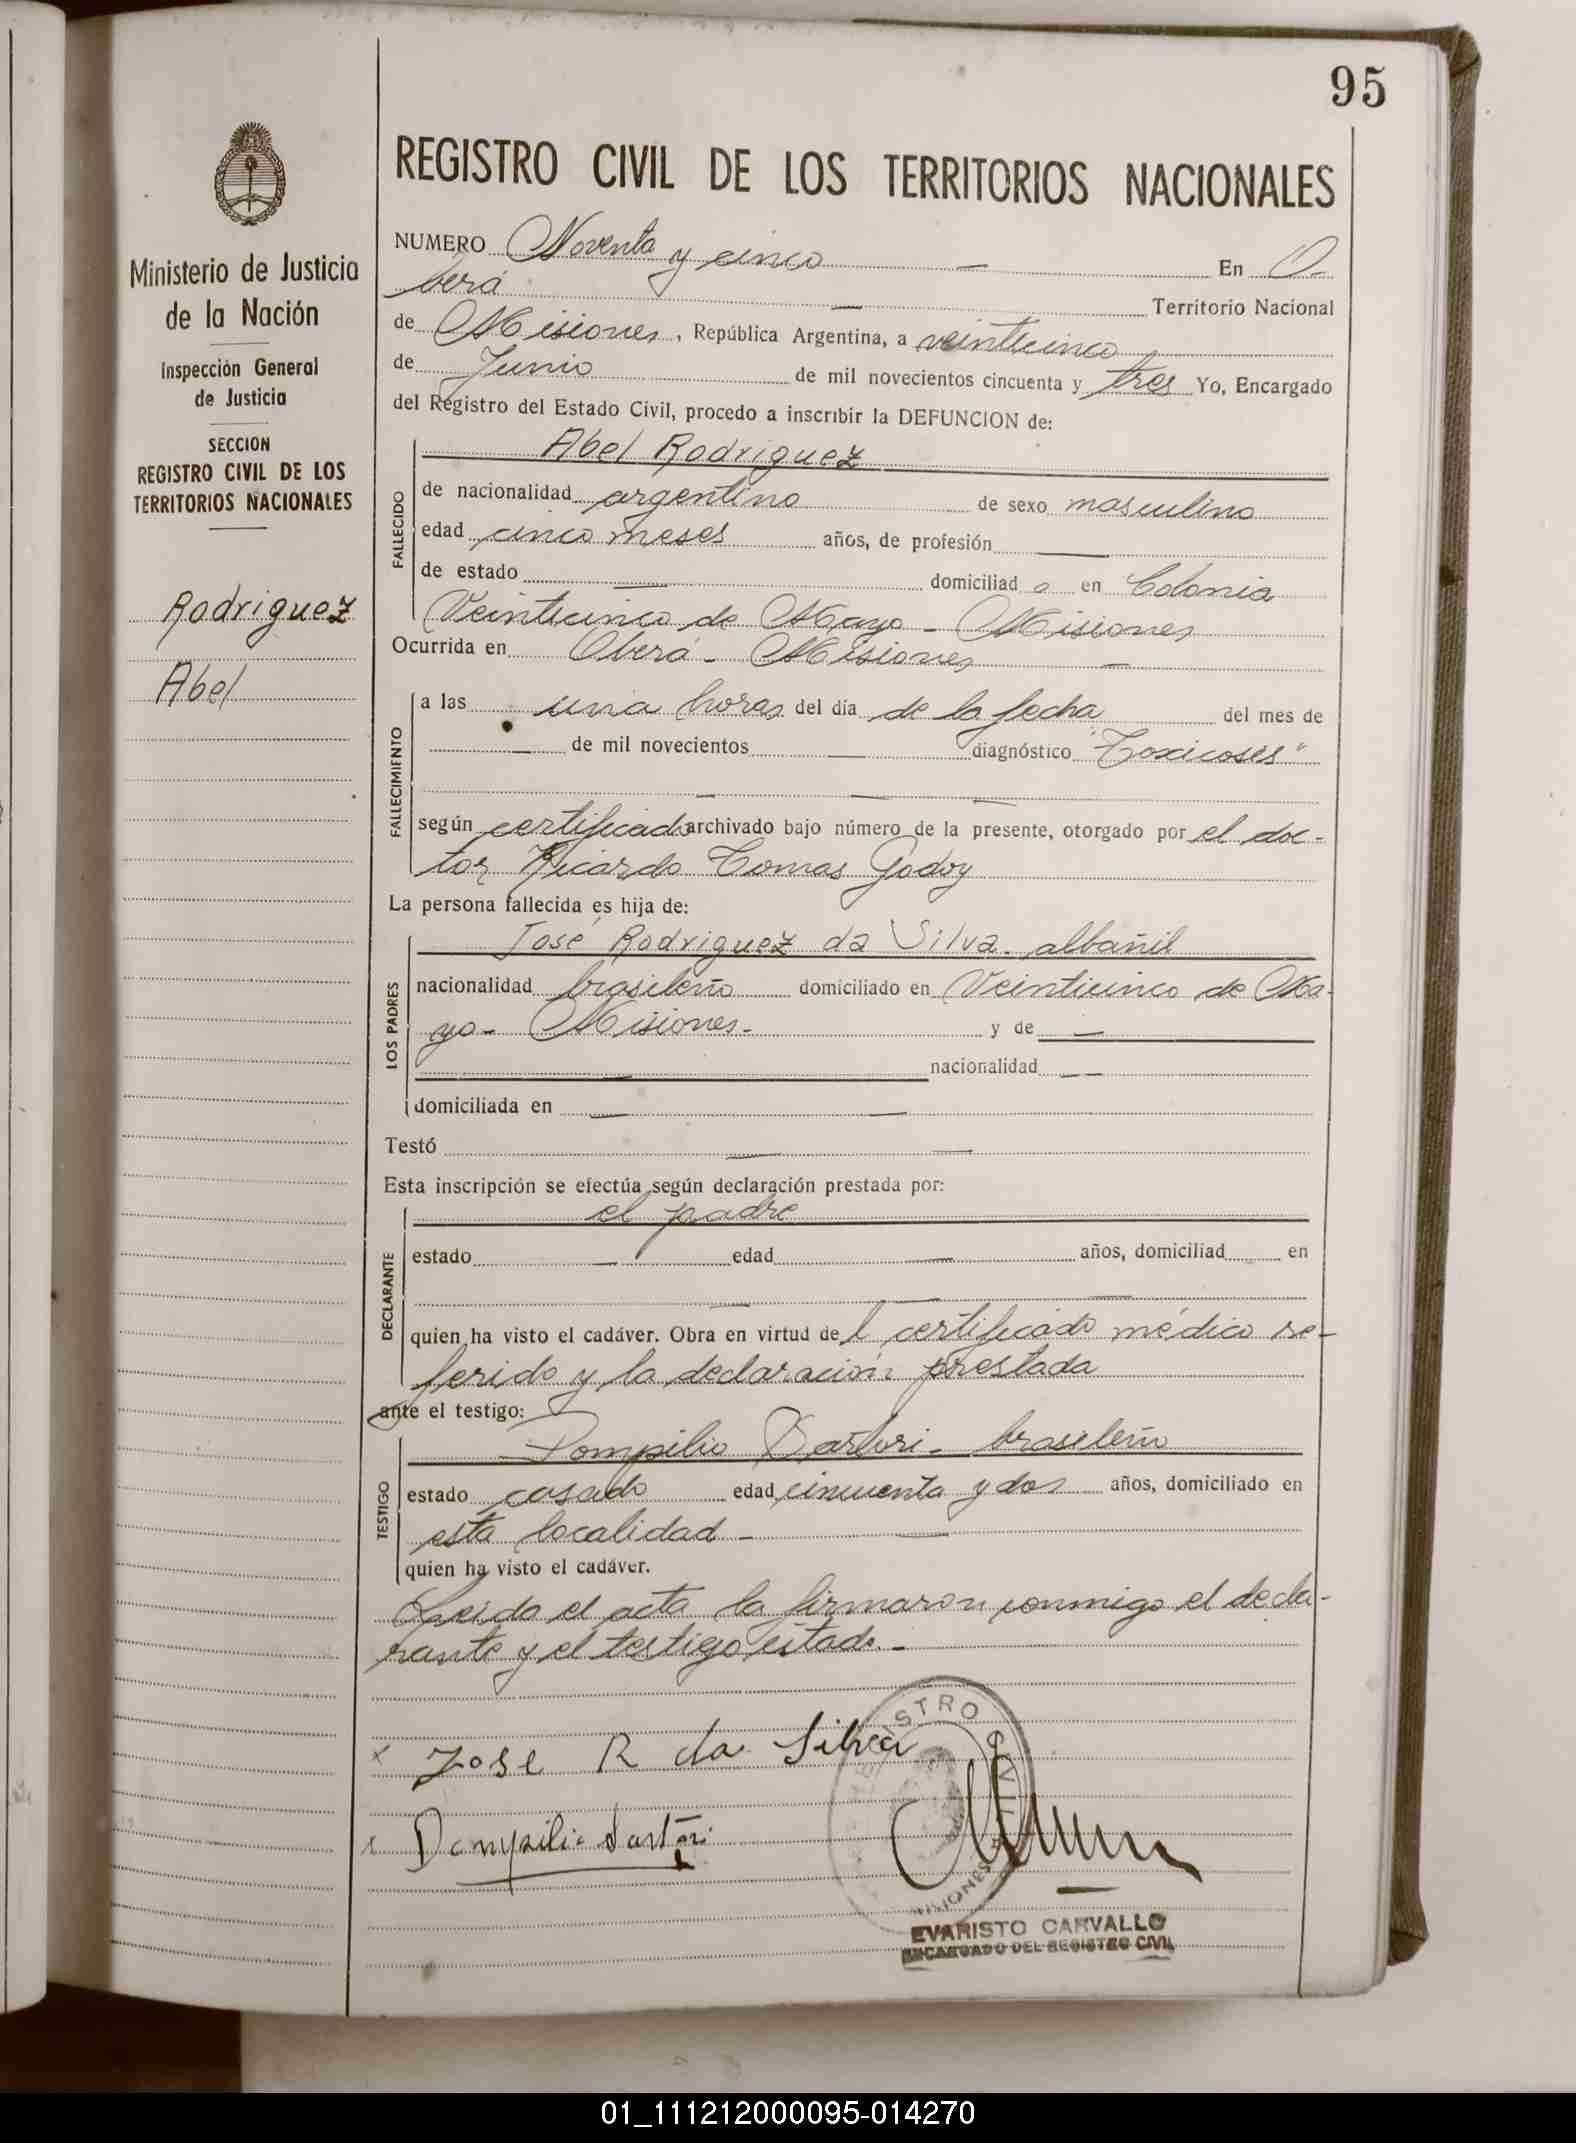 95
REGISTRO CIVIL DE LOS TERRITORIOS NACIONALES
Ministerio de Justicia
de la Nación
Inspección General
de Justicia
SECCION
REGISTRO CIVIL DE LOS
TERRITORIOS NACIONALES
Rodriguez
Abel
NUMERO Noventa y cinco — En O-
berá — Territorio Nacional
de Misiones, República Argentina, a veinticinco
de Junio de mil novecientos cincuenta y tres Yo, Encargado
del Registro del Estado Civil, procedo a inscribir la DEFUNCION de:
FALLECIDO
Abel Rodriguez
de nacionalidad argentino de sexo masculino
edad cinco meses años, de profesión —
de estado — domiciliad o en Colonia
Veinticinco de Mayo - Misiones
Ocurrida en Oberá - Misiones —
FALLECIMIENTO
a las una horas del día de la fecha del mes de
— de mil novecientos — diagnóstico "Toxicoses"
— — —
según certificado archivado bajo número de la presente, otorgado por el doc-
tor Ricardo Tomas Godoy
La persona fallecida es hija de:
LOS PADRES
José Rodriguez da Silva. albañil
nacionalidad brasileño domiciliado en Veinticinco de Ma-
yo - Misiones - y de —
— nacionalidad — —
domiciliada en — —
Testó — —
Esta inscripción se efectúa según declaración prestada por:
DECLARANTE
el padre
estado — edad — años, domiciliad en
— —
quien ha visto el cadáver. Obra en virtud de l certificado médico re-
ferido y la declaración prestada
ante el testigo:
TESTIGO
Pompilio Sartori - brasileño
estado casado edad cincuenta y dos años, domiciliado en
esta localidad - —
quien ha visto el cadáver.
Leida el acta la firmaron conmigo el decla-
rante y el testigo citado.-
x Jose R da Silva
x Pompilio Sartori
REGISTRO CIVIL
MISIONES
EVARISTO CARVALLO
ENCARGADO DEL REGISTRO CIVIL
01_111212000095-014270